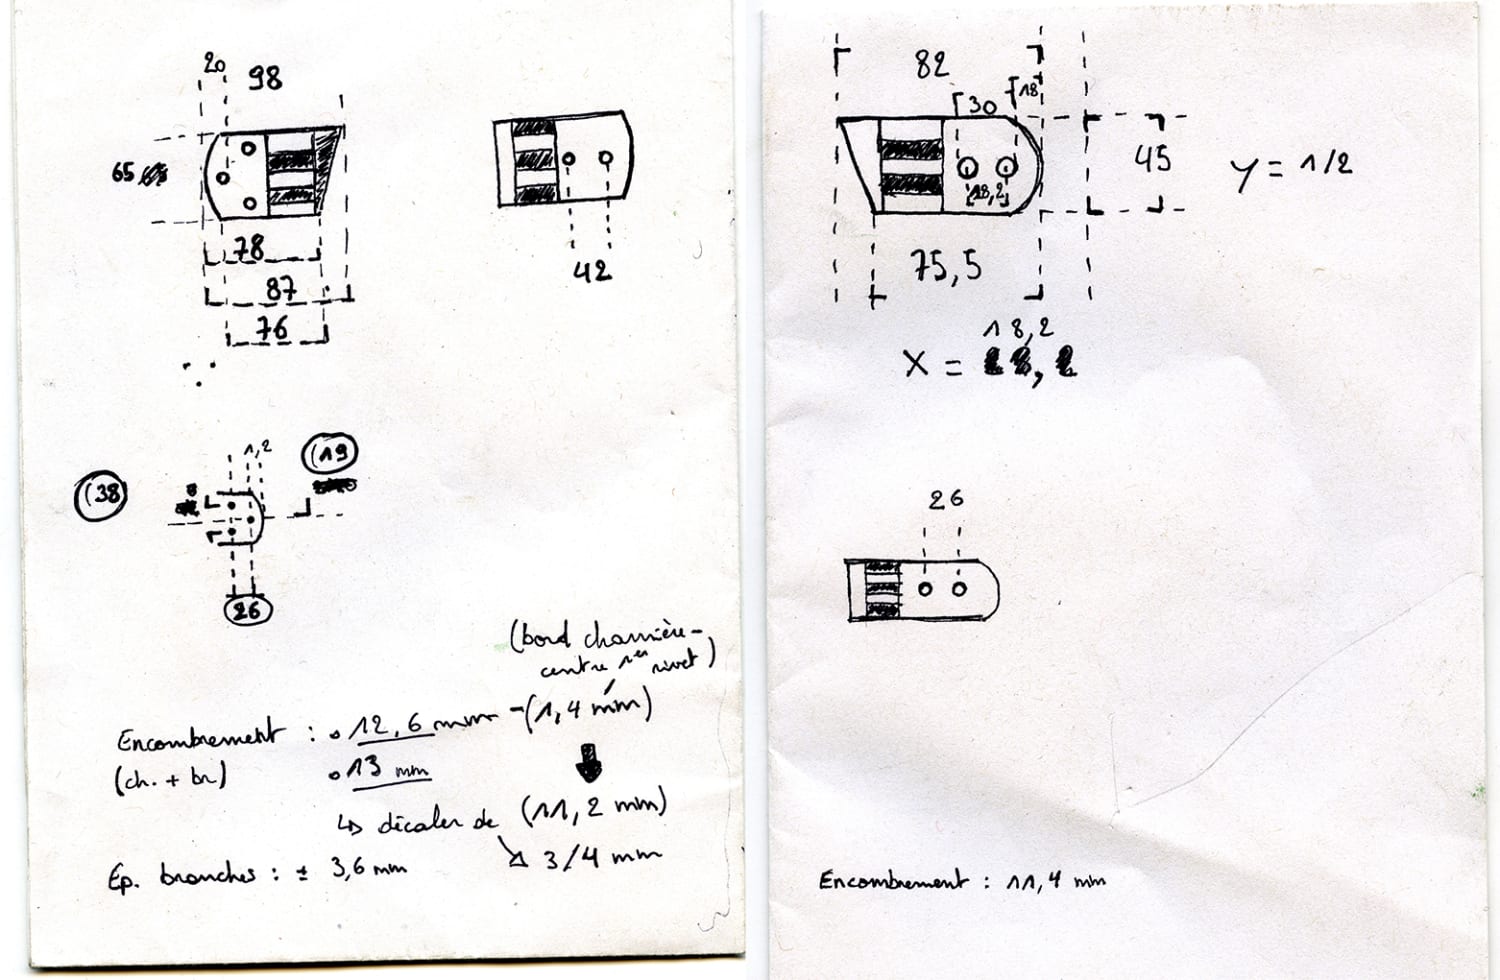 20
98
65
78
87
76
42
1,2
(19)
(38)
8
26
(bord charnière -
centre 1er rivet)
Encombrement : • 12,6 mm - (1,4 mm)
(ch. + br.)
• 13 mm
↳ décaler de (11,2 mm)
↘ 3/4 mm
Ep. branches : ± 3,6 mm
82
18
30
18,2
45
Y = 1/2
75,5
18,2
X =
26
Encombrement : 11,4 mm